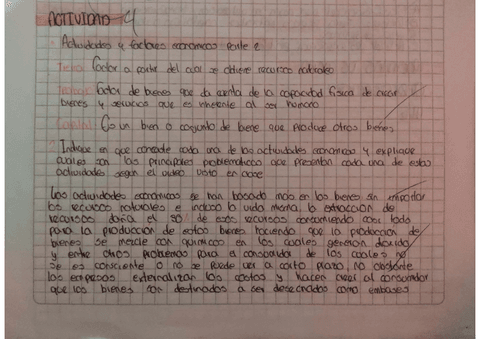 ACTIVIDAD 4
Actividades y factores económicos parte 2
Tierra: factor a partir del cual se obtiene recursos naturales
Trabajo: factor de bienes que da cuenta de la capacidad física de crear
bienes y servicios que es inherente al ser humano
Capital: Es un bien o conjunto de biene que produce otros bienes
2 Indique en que consiste cada una de las actividades económicas y explique
cuales son las principales problematicas que presentan cada una de estas
actividades según el video visto en clase
Las actividades económicas se han basado más en los bienes sin importar
los recursos naturales e incluso la vida misma, la extracción de
recursos daña el 80% de estos recursos consumiendo casi todo
para la producción de estos bienes haciendo que la producción de
bienes se mezcle con quimicos en los cuales generan
y entre otros problemas para el consumidor de los cuales no
se es consciente o no se puede ver a corto plazo, no obstante
las empresas externalizan los costos y hacen creer al consumidor
que los bienes son destinados a ser desechados como embases